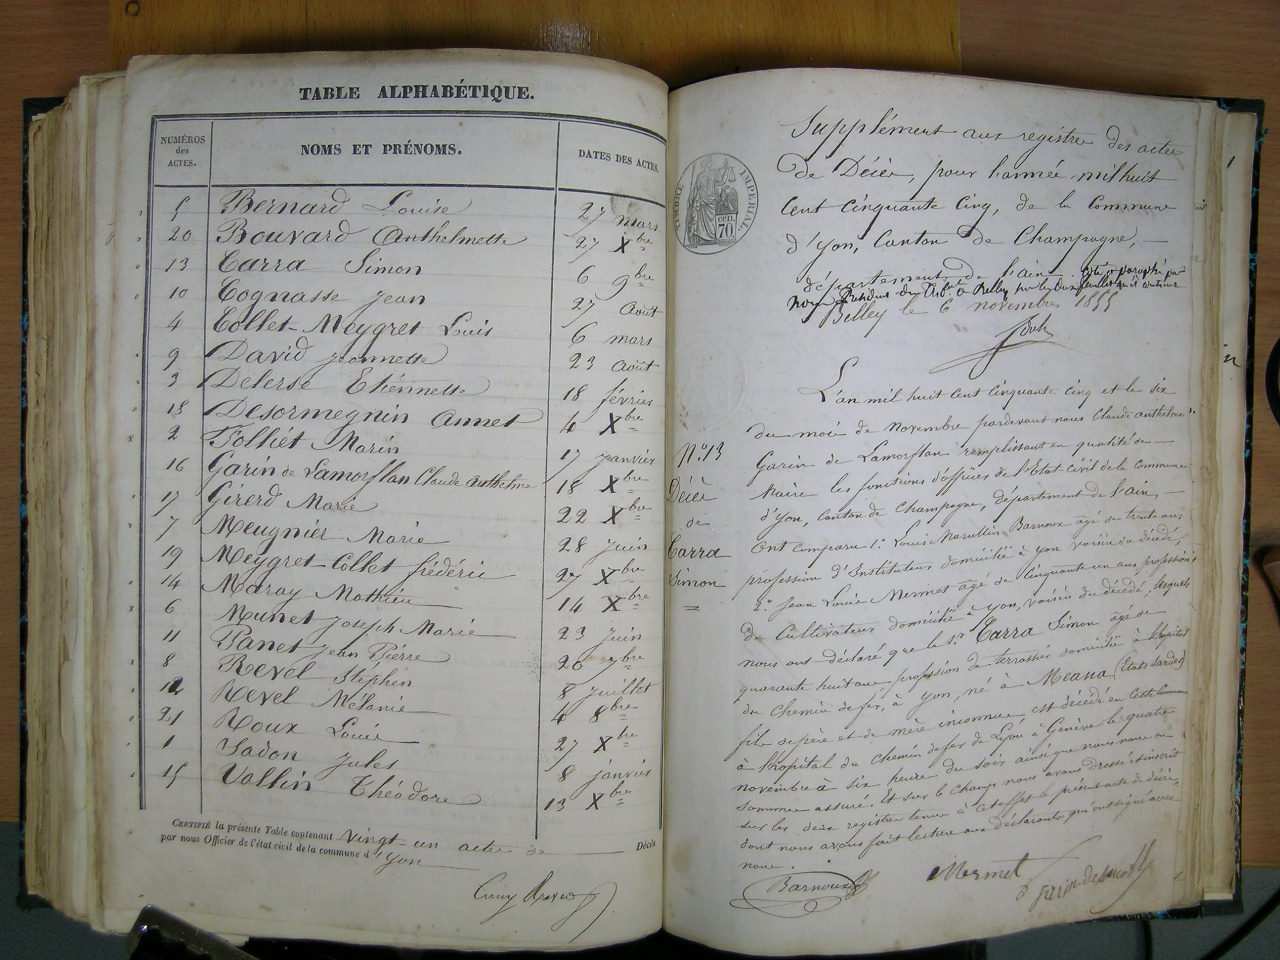 TABLE ALPHABÉTIQUE.
NUMÉROS des ACTES. NOMS ET PRÉNOMS. DATES DES ACTES.
5 Bernard Louise 27 mars
20 Bouvard Anthelmette 27 Xbre
13 Carra Simon 6 9bre
10 Cognasse Jean 27 Août
4 Collet-Meygret Louis 6 mars
9 David Jeannette 23 août
3 Delerse Etiennette 18 février
18 Desormegnin Annet 4 Xbre
2 Folliet Marin 17 janvier
16 Garin de Lamorflan Claude Anthelme 18 Xbre
17 Girerd Marie 22 Xbre
7 Meugnier Marie 28 juin
19 Meygret-Collet frédéric 27 Xbre
14 Maray Mathieu 14 Xbre
6 Munet Joseph Marie 23 juin
11 Panet Jean Pierre 20 7bre
8 Revel Stephen 8 juillet
12 Revel Mélanie 4 8bre
21 Roux Louise 27 Xbre
1 Sadon Jules 8 janvier
15 Vallin Théodore 13 Xbre
CERTIFIÉ la présente Table contenant Vingt-un actes de Décès
par nous Officier de l'état civil de la commune d'Yon
TIMBRE IMPÉRIAL
70
Supplément aux registre des actes
de Décès, pour l'année mil huit
Cent Cinquante Cinq, de la Commune
d'Yon, Canton de Champagne,
département de l'ain. Coté et paraphé par
nous Président du Trib. de Belley
Belley le 6 novembre 1855
L'an mil huit cent cinquante cinq et le six
du mois de Novembre pardevant nous Claude anthelme
N° 13
Garin de Lamorflan remplissant en qualité de
Décès
Maire les fonctions d'officier de l'Etat Civil de la Commune
de
d'Yon, Canton de Champagne, département de l'ain,
Carra
Ont comparu 1° Louis Marullin Barnoux agé de trente ans
Simon
profession d'Instituteur domicilié à Yon voisin du décédé,
2° Jean Louis Mermet agé de Cinquante un ans profession
de Cultivateur domicilié à Yon, voisin du décédé, lesquels
nous ont déclaré que le Sr Carra Simon agé de
quarante huit ans profession de terrassier domicilié à l'hopital
du Chemin de fer, à Yon, né à Meana (Etats Sardes)
fils de père et de mère inconnue est décédé en cette Commune
à l'hopital du Chemin de fer de Lyon à Genève le quatre
novembre à six heures du soir ainsi que nous nous en
sommes assuré. Et sur le Champ nous avons dressé et inscrit
sur les deux registre tenus à cet effet le présent acte de décès
dont nous avons fait lecture aux déclarants qui ont signé avec
nous.
Barnoux
Mermet